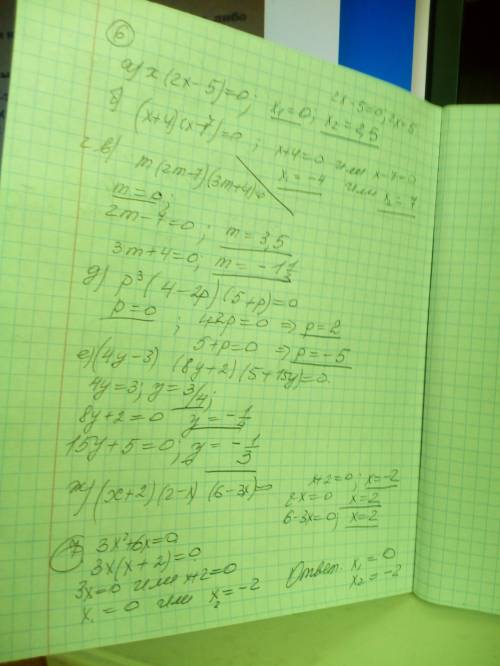 6
а) x(2x-5)=0; x₁=0; 2x-5=0; 2x=5
x₂=2,5
б) (x+4)(x-7)=0; x+4=0 или x-7=0
x₁=-4 или x₂=7
в) m(2m-7)(3m+4)=0
m=0;
2m-7=0; m=3,5
3m+4=0; m=-1 1/3
д) p³(4-2p)(5+p)=0
p=0; 4-2p=0 ⇒ p=2
5+p=0 ⇒ p=-5
е) (4y-3)(8y+2)(5+15y)=0
4y=3; y=3/4;
8y+2=0 y=-1/4
15y+5=0; y=-1/3
ж) (x+2)(2-x)(6-3x)=0 x+2=0; x=-2
2-x=0 x=2
6-3x=0; x=2
7 3x²+6x=0
3x(x+2)=0
3x=0 или x+2=0
x₁=0 или x₂=-2
Ответ: x₁=0
x₂=-2